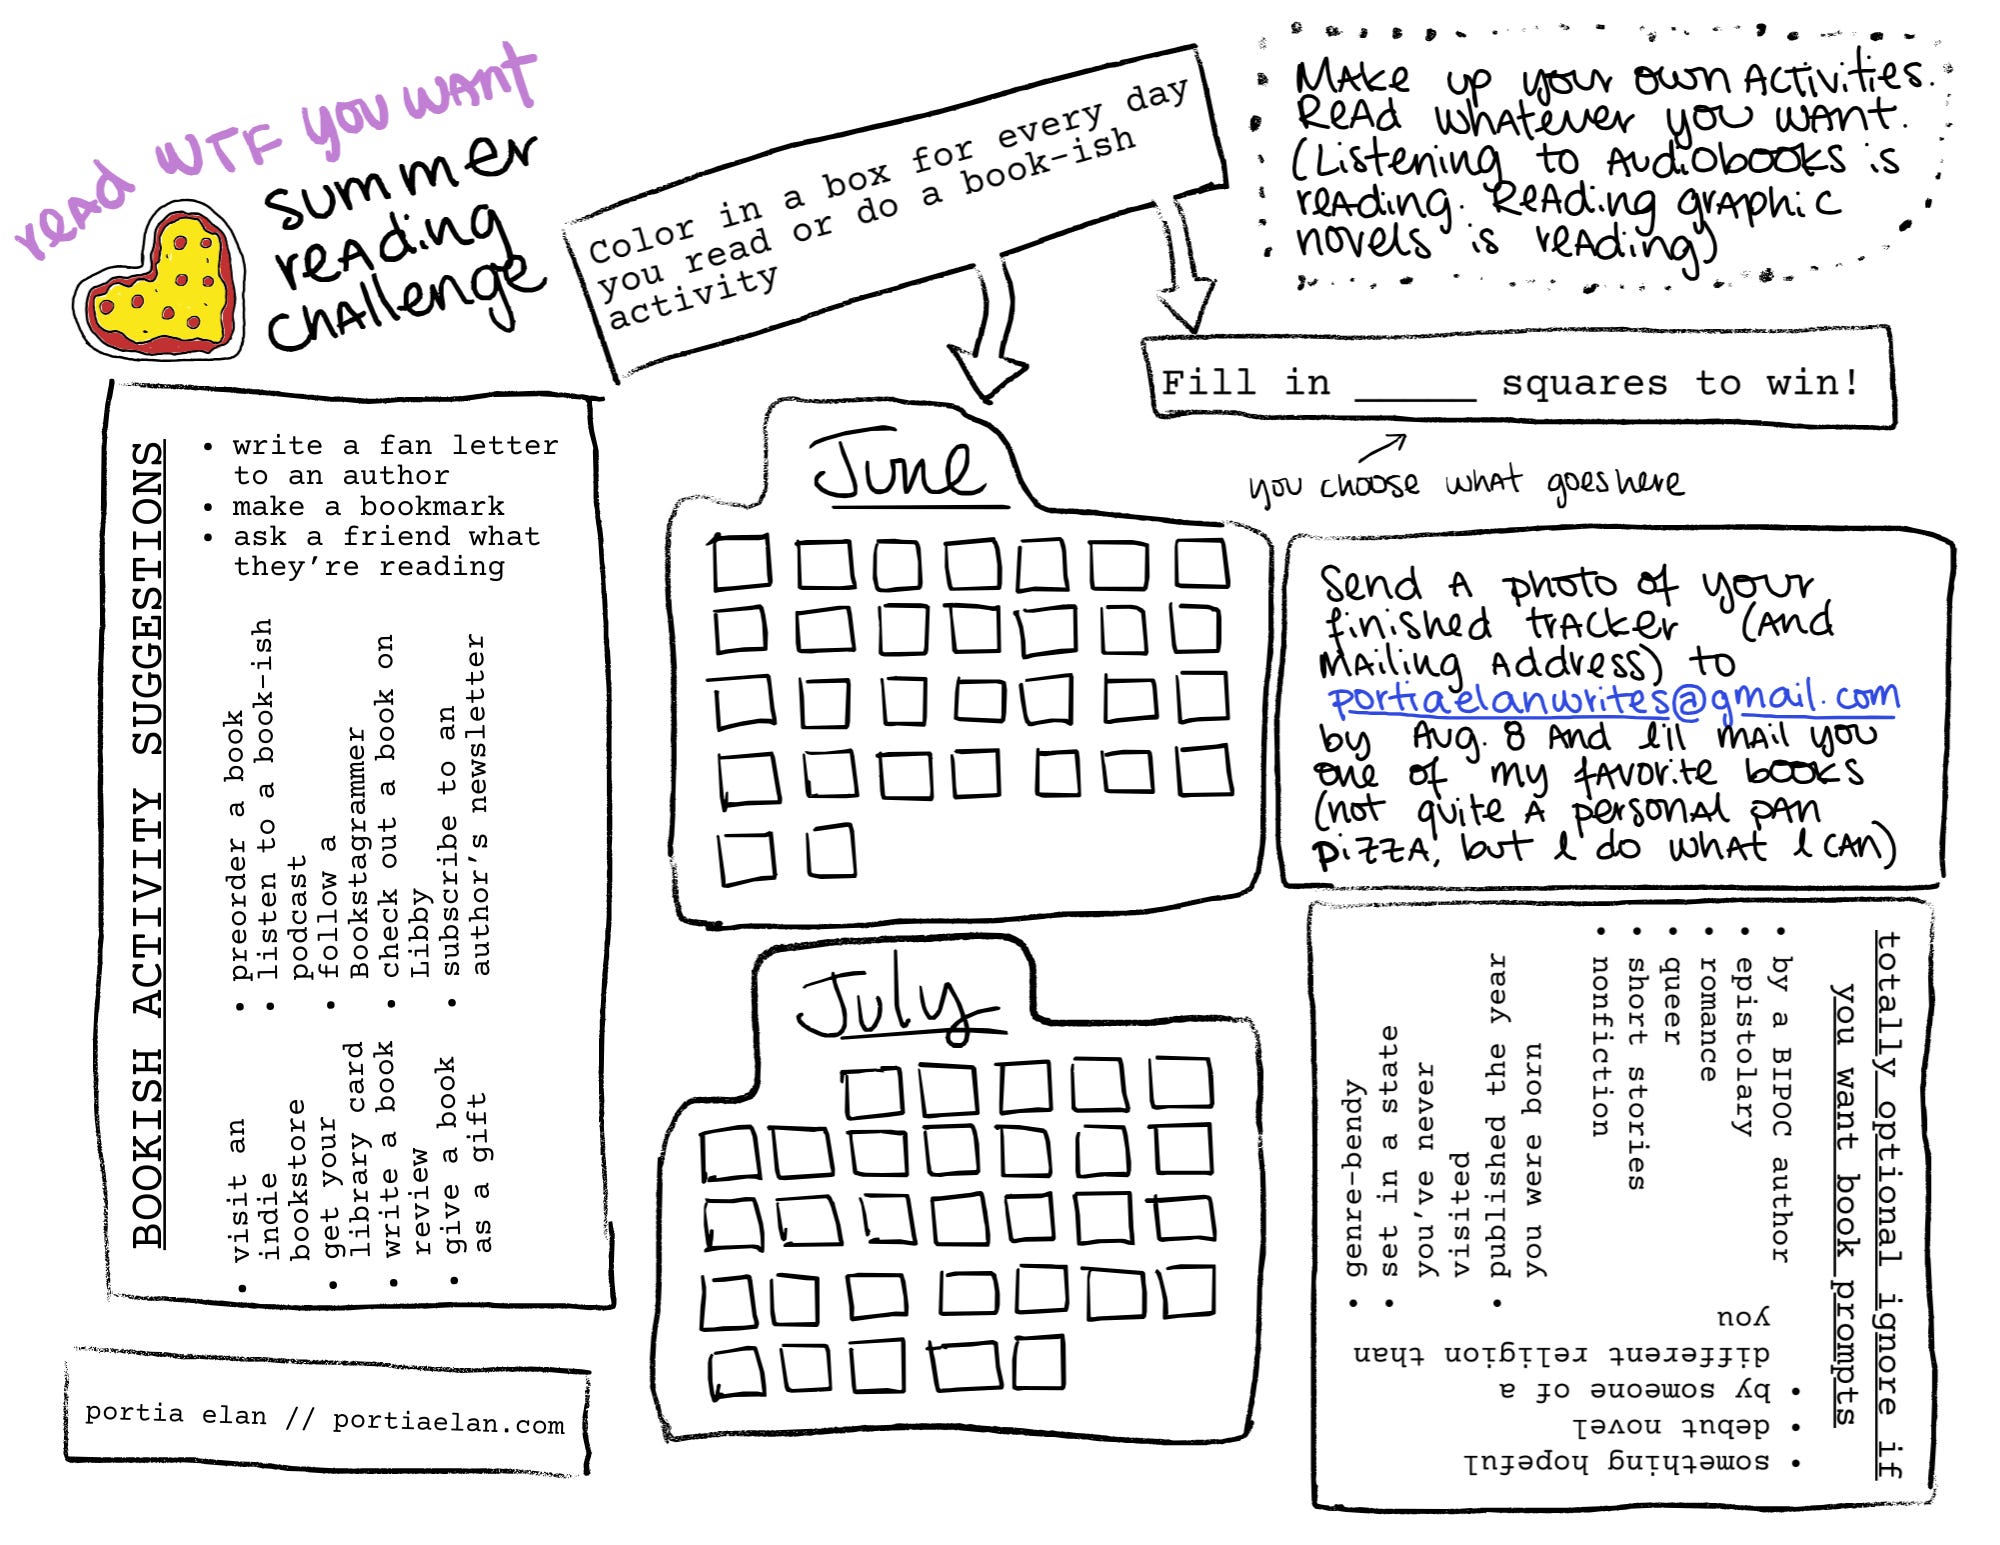 reAd WTF you wAnt
summer
reAding
chAllenge
Color in a box for every day
you read or do a book-ish
activity
MAke up your own Activities.
ReAd whAtever you wAnt.
(Listening to Audiobooks is
reAding. ReAding grAphic
novels is reAding)
Fill in _____ squares to win!
you choose whAt goes here
BOOKISH ACTIVITY SUGGESTIONS
• write a fan letter
to an author
• make a bookmark
• ask a friend what
they’re reading
• preorder a book
• listen to a book-ish
podcast
• follow a
Bookstagrammer
• check out a book on
Libby
• subscribe to an
author’s newsletter
• visit an
indie
bookstore
• get your
library card
• write a book
review
• give a book
as a gift
June
July
Send A photo of your
finished trAcker (And
mAiling Address) to
portiaelanwrites@gmail.com
by Aug. 8 And I'll mAil you
one of my fAvorite books
(not quite A personAl pAn
pizzA, but I do whAt I cAn)
totally optional ignore if
you want book prompts
• by a BIPOC author
• epistolary
• romance
• queer
• short stories
• nonfiction
• published the year
you were born
• set in a state
you’ve never
visited
• genre-bendy
• something hopeful
• debut novel
• by someone of a
different religion than
you
portia elan // portiaelan.com